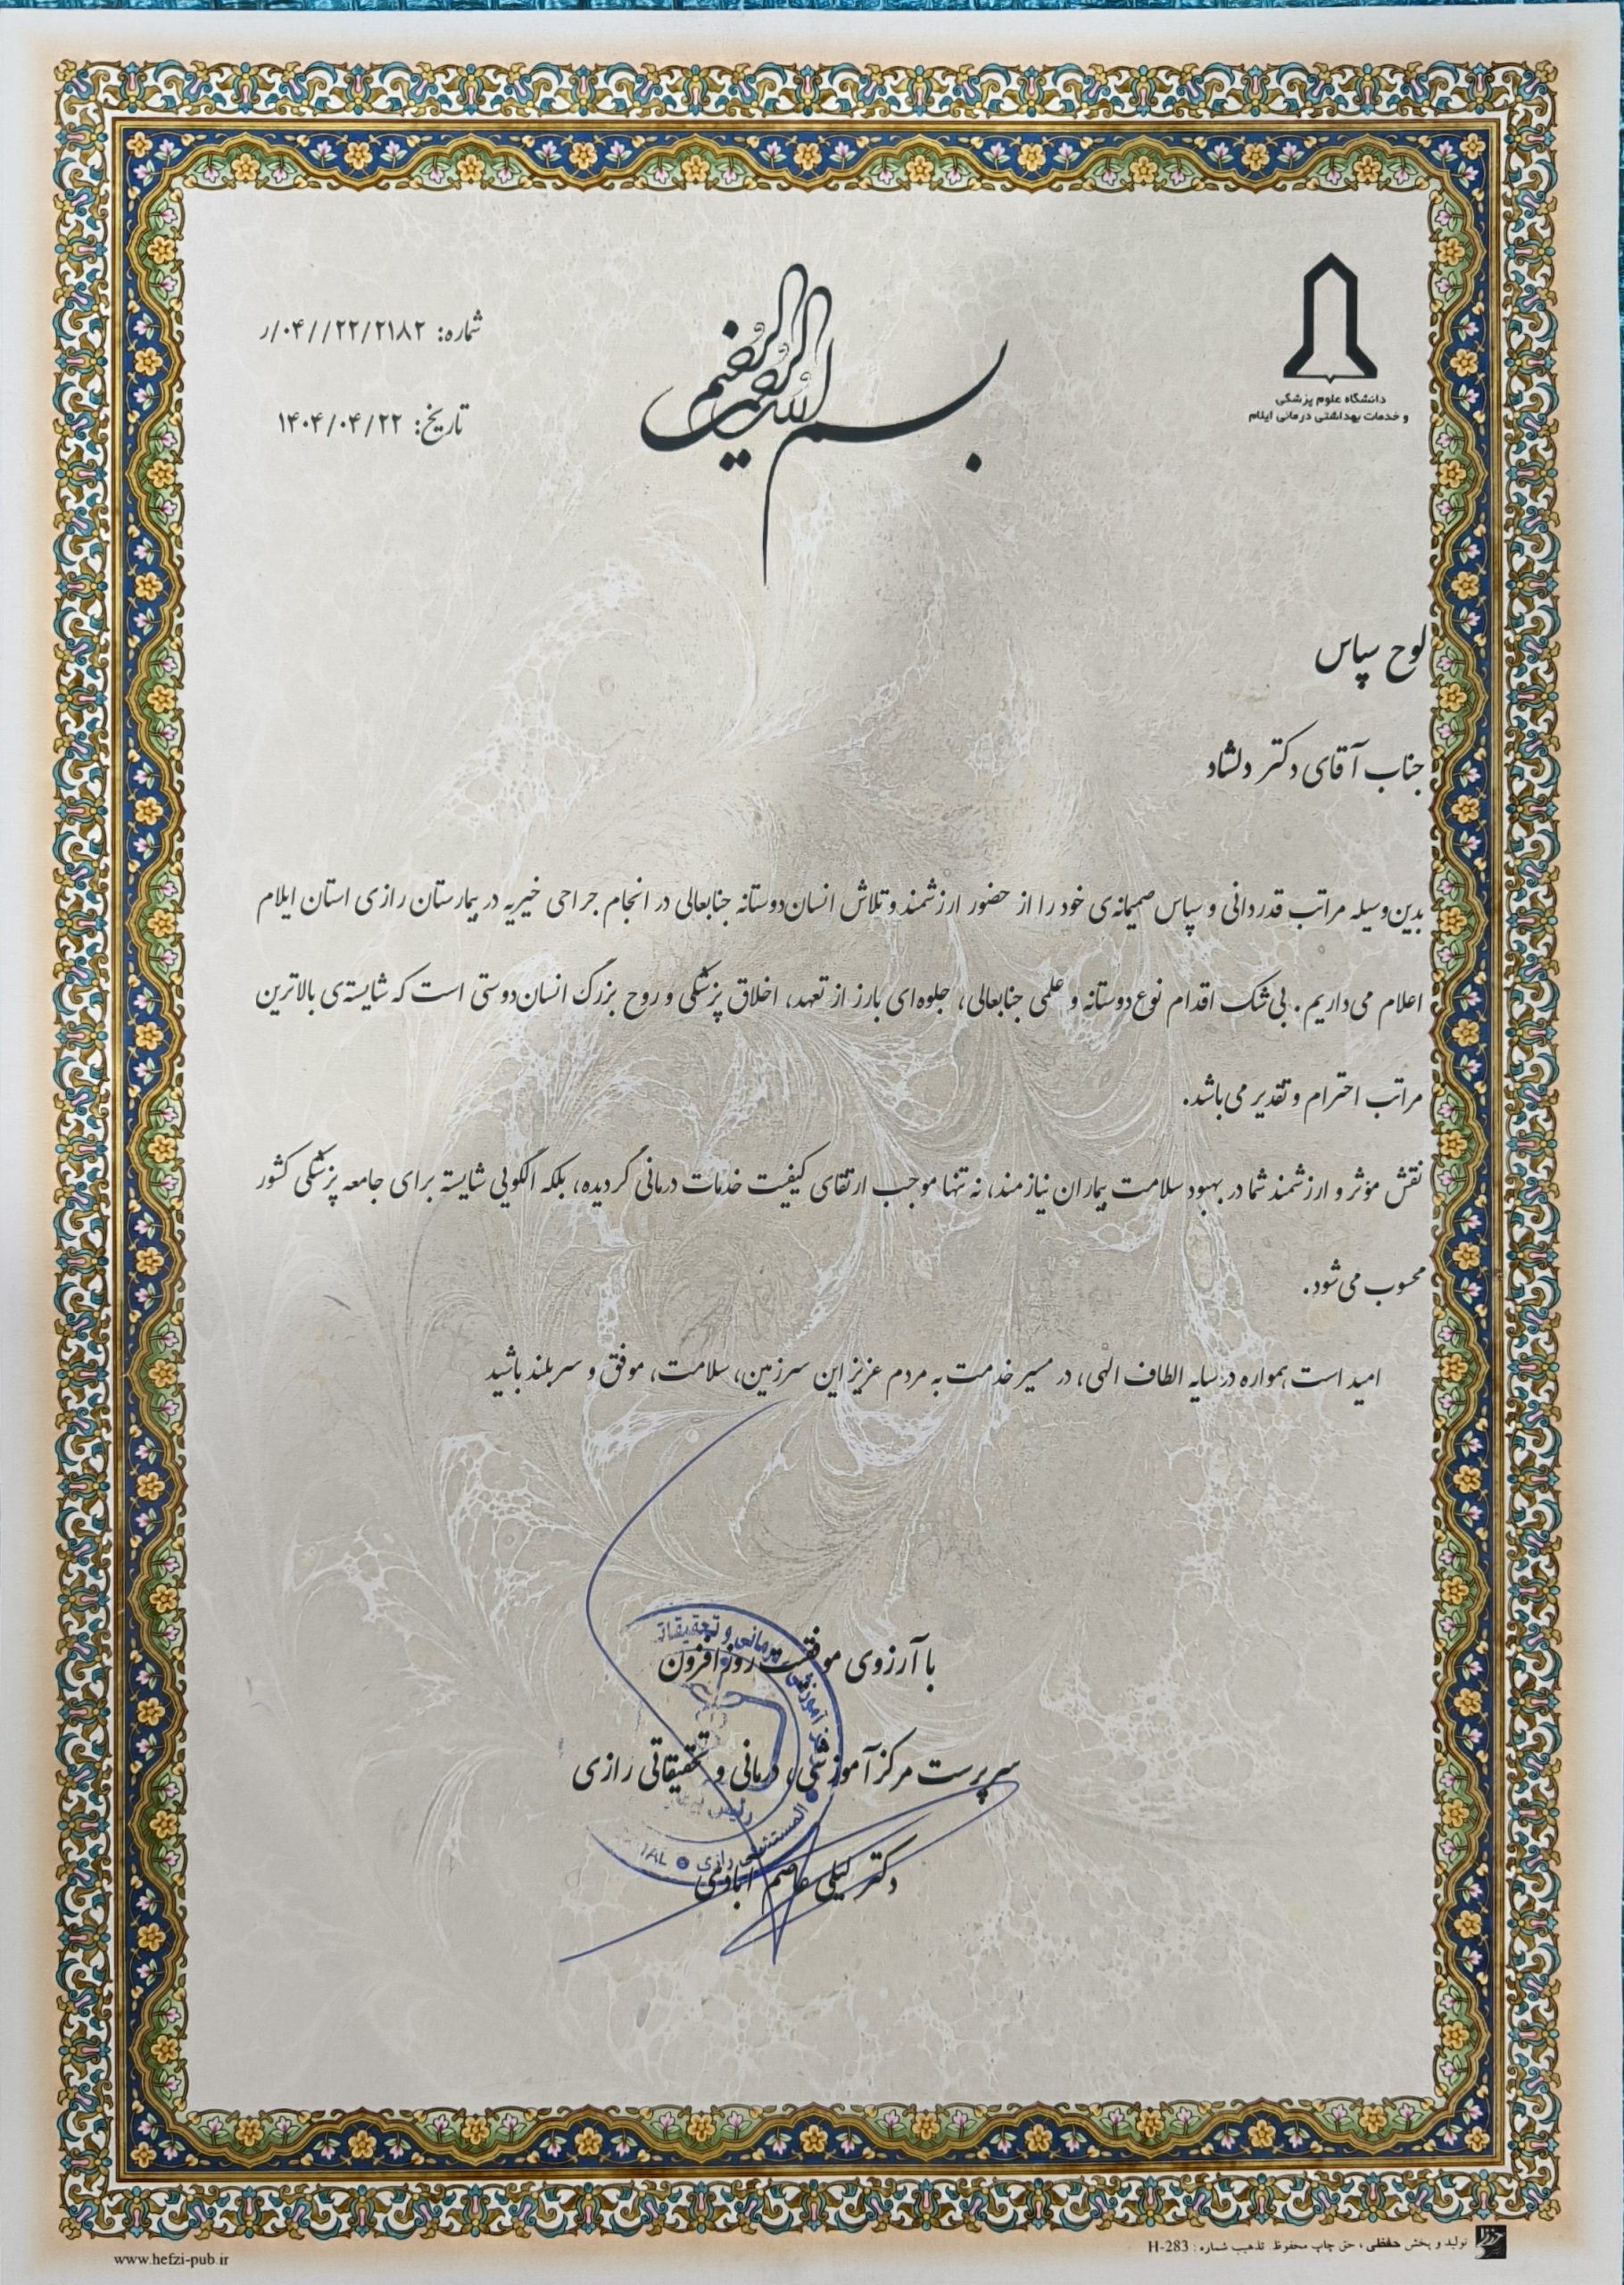 بسم الله الرحمن الرحیم
دانشگاه علوم پزشکی
و خدمات بهداشتی درمانی ایلام
شماره: ۲۲/۲۱۸۲//۰۴/ر
تاریخ: ۱۴۰۴/۰۴/۲۲
لوح سپاس
جناب آقای دکتر دلشاد
بدین‌وسیله مراتب قدردانی و سپاس صمیمانه‌ی خود را از حضور ارزشمند و تلاش انسان‌دوستانه جنابعالی در انجام جراحی خیریه در بیمارستان رازی استان ایلام
اعلام می‌داریم. بی‌شک اقدام نوع‌دوستانه و علمی جنابعالی، جلوه‌ای بارز از تعهد، اخلاق پزشکی و روح بزرگ انسان‌دوستی است که شایسته‌ی بالاترین
مراتب احترام و تقدیر می‌باشد.
نقش مؤثر و ارزشمند شما در بهبود سلامت بیماران نیازمند، نه تنها موجب ارتقای کیفیت خدمات درمانی گردیده، بلکه الگویی شایسته برای جامعه پزشکی کشور
محسوب می‌شود.
امید است همواره در سایه الطاف الهی، در مسیر خدمت به مردم عزیز این سرزمین، سلامت، موفق و سربلند باشید
با آرزوی موفقیت روزافزون
سرپرست مرکز آموزشی، درمانی و تحقیقاتی رازی
دکتر لیلی عاصم آبادی
المستشفی رازی
تولید و پخش حافظی، حق چاپ محفوظ. تذهیب شماره: H-283
www.hefzi-pub.ir